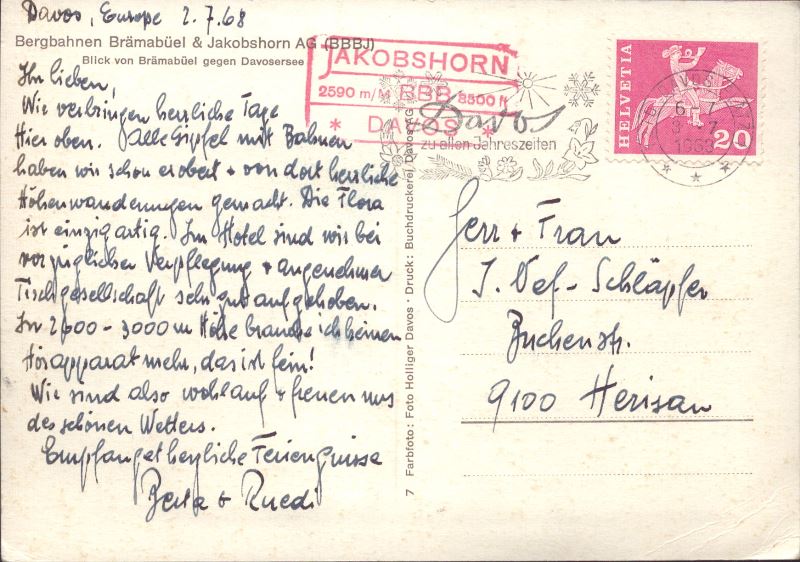 Davos, Europe 2.7.68
Bergbahnen Brämabüel & Jakobshorn AG (BBBJ)
Blick von Brämabüel gegen Davosersee
Ihr lieben,
Wir verbringen herrliche Tage
Hier oben. Alle Gipfel mit Bahnen
haben wir schon erobert + von dort herrliche
Höhenwanderungen gemacht. Die Flora
ist einzigartig. Im Hotel sind wir bei
vorzüglicher Verpflegung + angenehmer
Tischgesellschaft sehr gut aufgehoben.
In 2600-3000 m Höhe brauche ich keinen
Hörapparat mehr, das ist fein!
Wir sind also wohlauf + freuen uns
des schönen Wetters.
Empfanget herzliche Feriengrüsse
Berta + Ruedi
JAKOBSHORN
2590 m/M BBB 8500 ft
* DAVOS *
Davos
zu allen Jahreszeiten
HELVETIA
20
7 Farbfoto: Foto Holliger Davos · Druck: Buchdruckerei Davos AG
Herr + Frau
J. Nef-Schläpfer
Buchenstr.
9100 Herisau